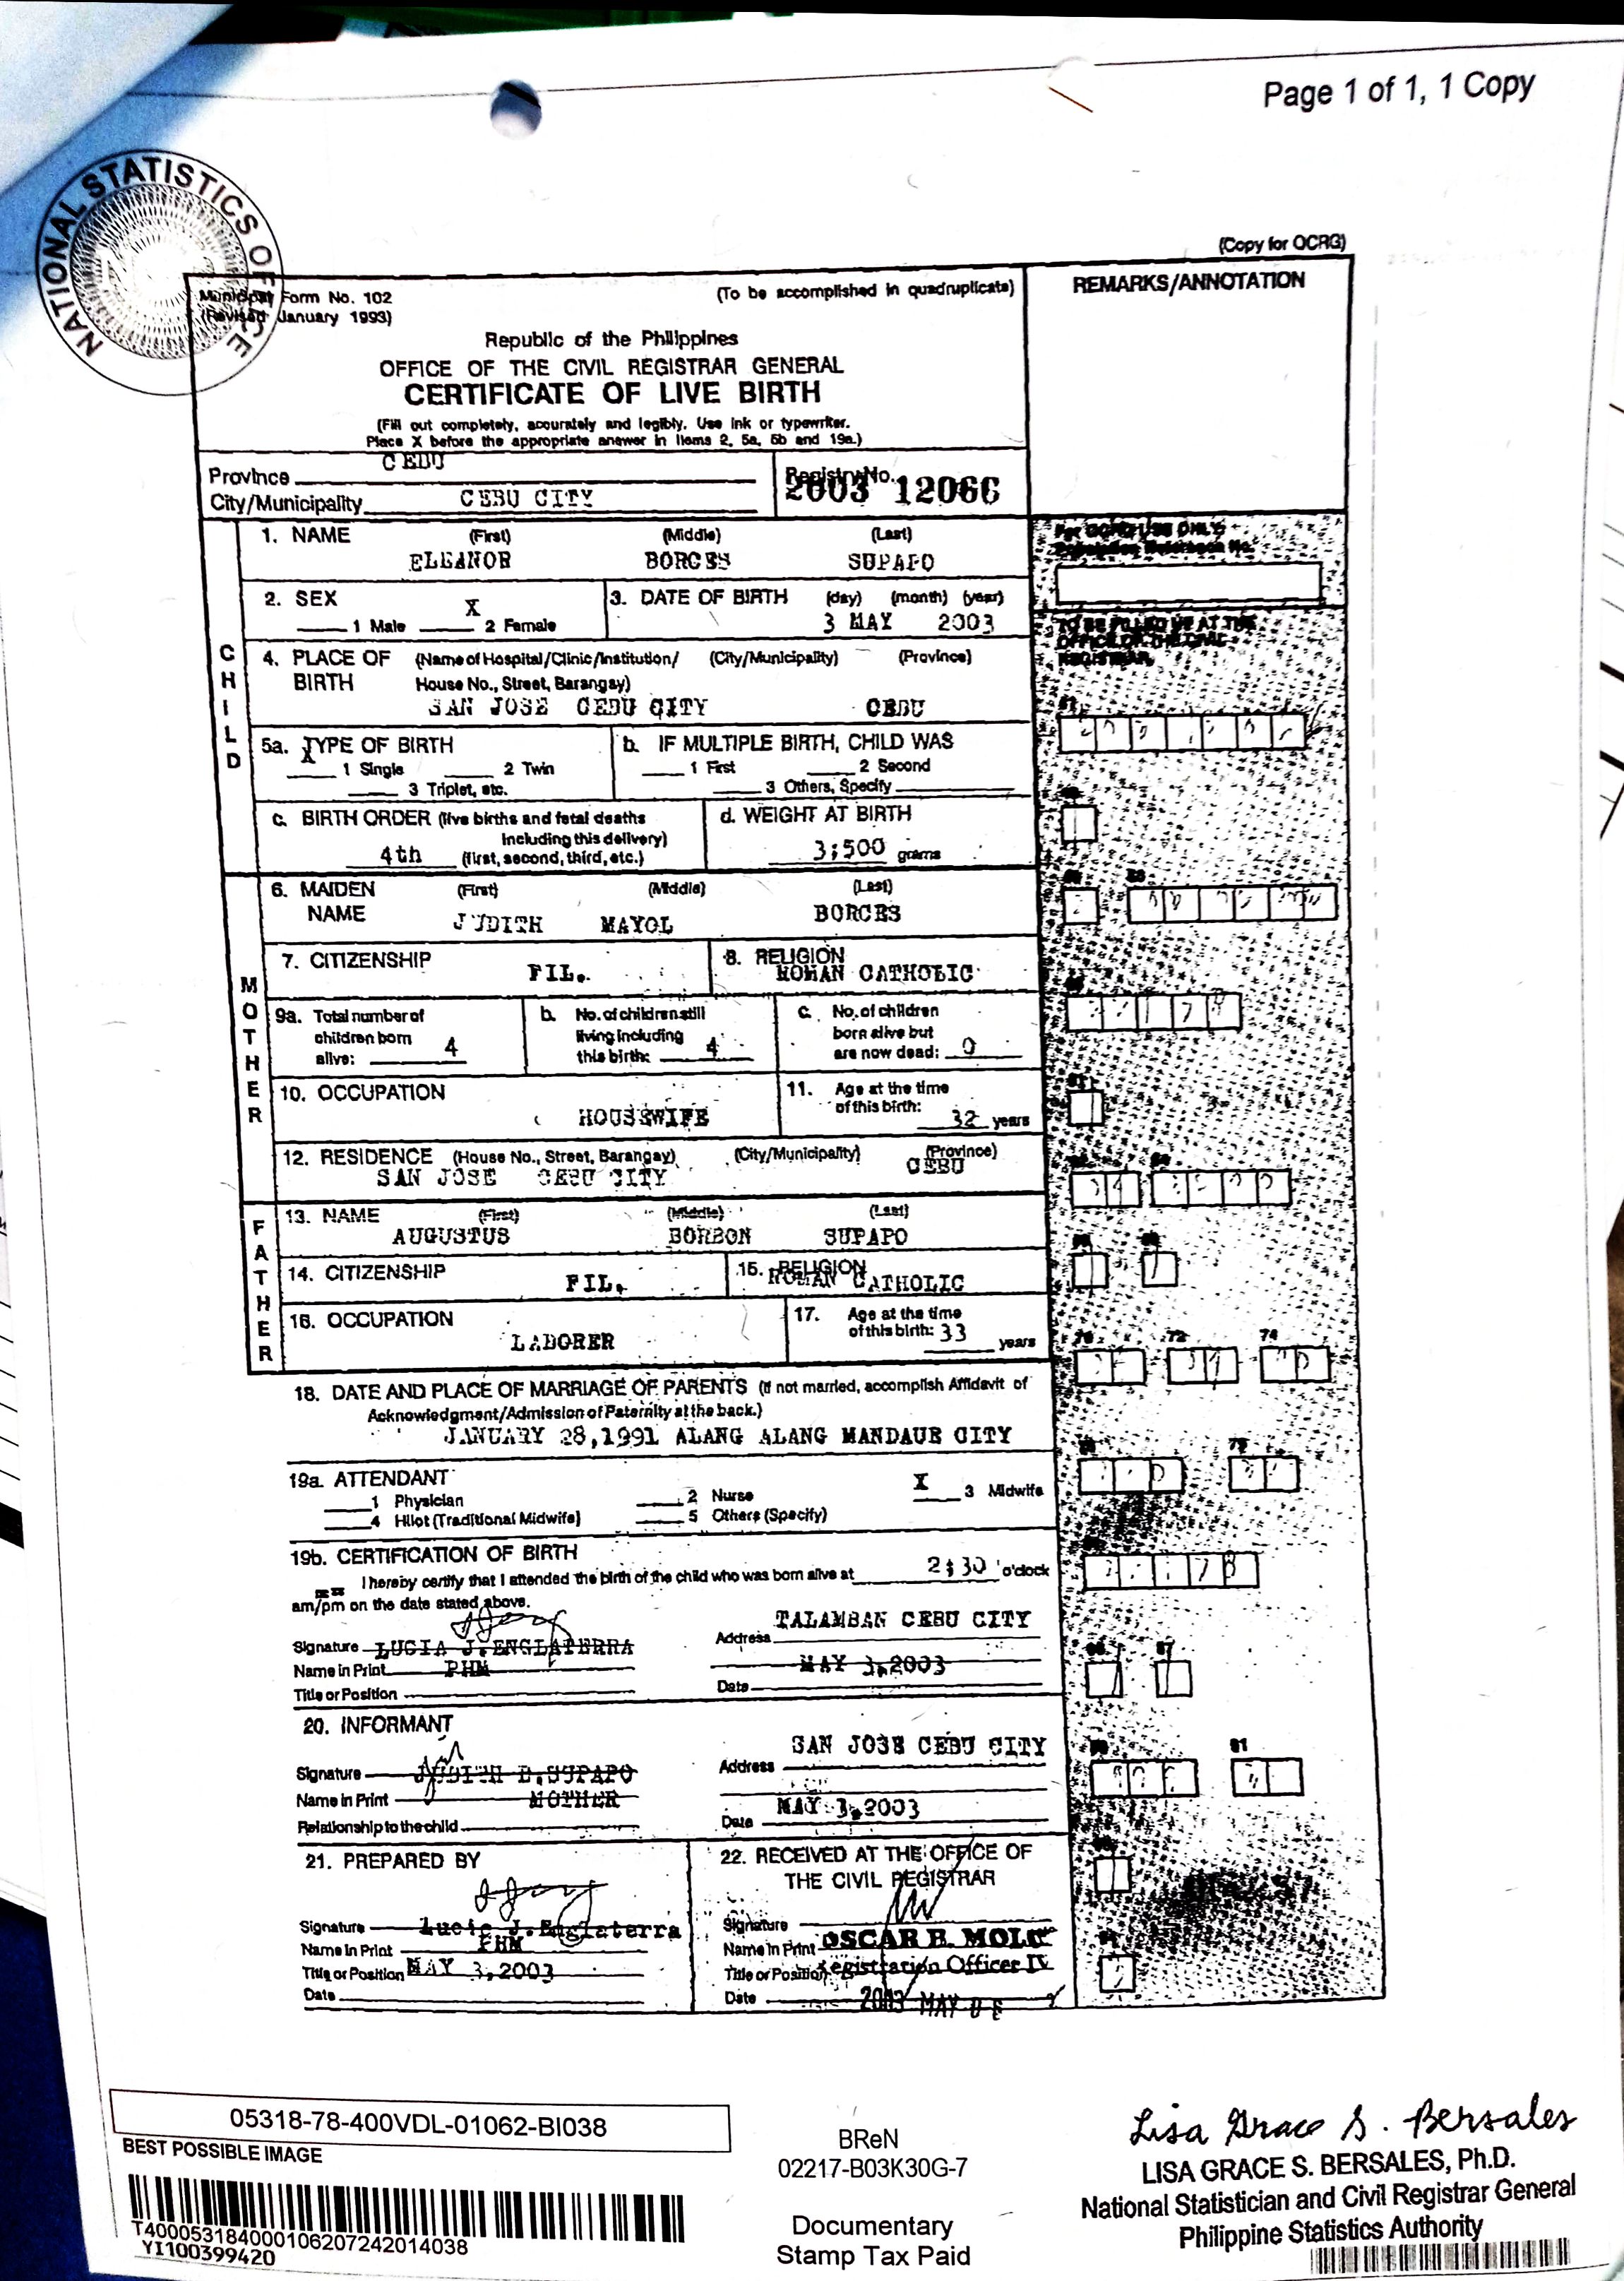 Page 1 of 1, 1 Copy
NATIONAL STATISTICS OFFICE
(Copy for OCRG)
Municipal Form No. 102
(Revised January 1993)
(To be accomplished in quadruplicate)
REMARKS/ANNOTATION
Republic of the Philippines
OFFICE OF THE CIVIL REGISTRAR GENERAL
CERTIFICATE OF LIVE BIRTH
(Fill out completely, accurately and legibly. Use ink or typewriter.
Place X before the appropriate answer in items 2, 5a, 5b and 19a.)
Province CEBU
City/Municipality CEBU CITY
Registry No.
2003 12066
CHILD
1. NAME (First) (Middle) (Last)
ELEANOR BORCES SUPAPO
2. SEX
X
1 Male 2 Female
3. DATE OF BIRTH (day) (month) (year)
3 MAY 2003
4. PLACE OF BIRTH (Name of Hospital/Clinic/Institution/ House No., Street, Barangay) (City/Municipality) (Province)
SAN JOSE CEBU CITY CEBU
5a. TYPE OF BIRTH
X
1 Single 2 Twin
3 Triplet, etc.
b. IF MULTIPLE BIRTH, CHILD WAS
1 First 2 Second
3 Others, Specify
c. BIRTH ORDER (live births and fetal deaths
including this delivery)
4th (first, second, third, etc.)
d. WEIGHT AT BIRTH
3;500 grams
MOTHER
6. MAIDEN NAME (First) (Middle) (Last)
JUDITH MAYOL BORCES
7. CITIZENSHIP
FIL.
8. RELIGION
ROMAN CATHOLIC
9a. Total number of
children born
alive: 4
b. No. of children still
living including
this birth: 4
c. No. of children
born alive but
are now dead: 0
10. OCCUPATION
HOUSEWIFE
11. Age at the time
of this birth:
32 years
12. RESIDENCE (House No., Street, Barangay) (City/Municipality) (Province)
SAN JOSE CEBU CITY CEBU
FATHER
13. NAME (First) (Middle) (Last)
AUGUSTUS BORBON SUPAPO
14. CITIZENSHIP
FIL.
15. RELIGION
ROMAN CATHOLIC
16. OCCUPATION
LABORER
17. Age at the time
of this birth: 33 years
18. DATE AND PLACE OF MARRIAGE OF PARENTS (if not married, accomplish Affidavit of
Acknowledgment/Admission of Paternity at the back.)
JANUARY 28,1991 ALANG ALANG MANDAUE CITY
19a. ATTENDANT
1 Physician 2 Nurse X 3 Midwife
4 Hilot (Traditional Midwife) 5 Others (Specify)
19b. CERTIFICATION OF BIRTH
I hereby certify that I attended the birth of the child who was born alive at 2:30 o'clock
am/pm on the date stated above.
Signature LUCIA J. ENGLATERRA
Name in Print PHM
Title or Position
TALAMBAN CEBU CITY
Address
MAY 3,2003
Date
20. INFORMANT
Signature JUDITH B. SUPAPO
Name in Print MOTHER
Relationship to the child
SAN JOSE CEBU CITY
Address
MAY 3,2003
Date
21. PREPARED BY
Signature Lucia J. Englaterra
Name in Print PHM
Title or Position MAY 3,2003
Date
22. RECEIVED AT THE OFFICE OF
THE CIVIL REGISTRAR
Signature
Name in Print OSCAR B. MOLO
Title or Position Registration Officer IV
Date 2003 MAY
05318-78-400VDL-01062-BI038
BEST POSSIBLE IMAGE
T400053184000106207242014038
YI100399420
BReN
02217-B03K30G-7
Documentary
Stamp Tax Paid
Lisa Grace S. Bersales
LISA GRACE S. BERSALES, Ph.D.
National Statistician and Civil Registrar General
Philippine Statistics Authority